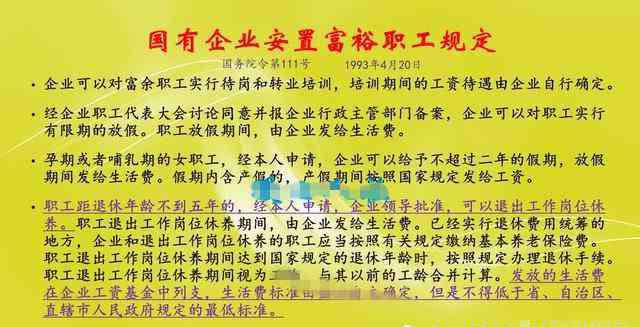 国有企业安置富裕职工规定
国务院令第111号 1993年4月20日
• 企业可以对富余职工实行待岗和转业培训，培训期间的工资待遇由企业自行确定。
• 经企业职工代表大会讨论同意并报企业行政主管部门备案，企业可以对职工实行
有限期的放假。职工放假期间，由企业发给生活费。
• 孕期或者哺乳期的女职工，经本人申请，企业可以给予不超过二年的假期，放假
期间发给生活费。假期内含产假的，产假期间按照国家规定发给工资。
• 职工距退休年龄不到五年的，经本人申请，企业领导批准，可以退出工作岗位休
养。职工退出工作岗位休养期间，由企业发给生活费。已经实行退休费用统筹的
地方，企业和退出工作岗位休养的职工应当按照有关规定缴纳基本养老保险费。
职工退出工作岗位休养期间达到国家规定的退休年龄时，按照规定办理退休手续。
职工退出工作岗位休养期间视为工 与其以前的工龄合并计算。发放的生活费
在企业工资基金中列支，生活费标准由 主确定，但是不得低于省、自治区、
直辖市人民政府规定的最低标准。